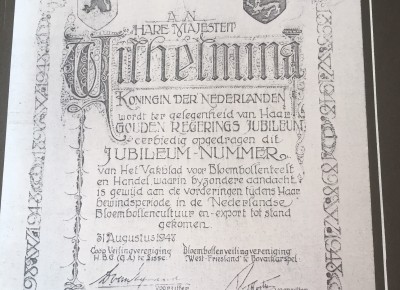 AAN
HARE MAJESTEIT
Wilhelmina
KONINGIN DER NEDERLANDEN
wordt ter gelegenheid van Haar
GOUDEN REGERINGS JUBILEUM
eerbiedig opgedragen dit
JUBILEUM-NUMMER
van Het Vakblad voor Bloembollenteelt
en Handel, waarin byzondere aandacht
is gewijd aan de vorderingen tijdens Haar
bewindsperiode in de Nederlandse
Bloembollencultuur en -export tot stand
gekomen.
31 Augustus 1948
Coöp. Veilingvereeniging Bloembollenveilingvereniging
H B G (G.A.) te Lisse "West-Friesland" te Bovenkarspel